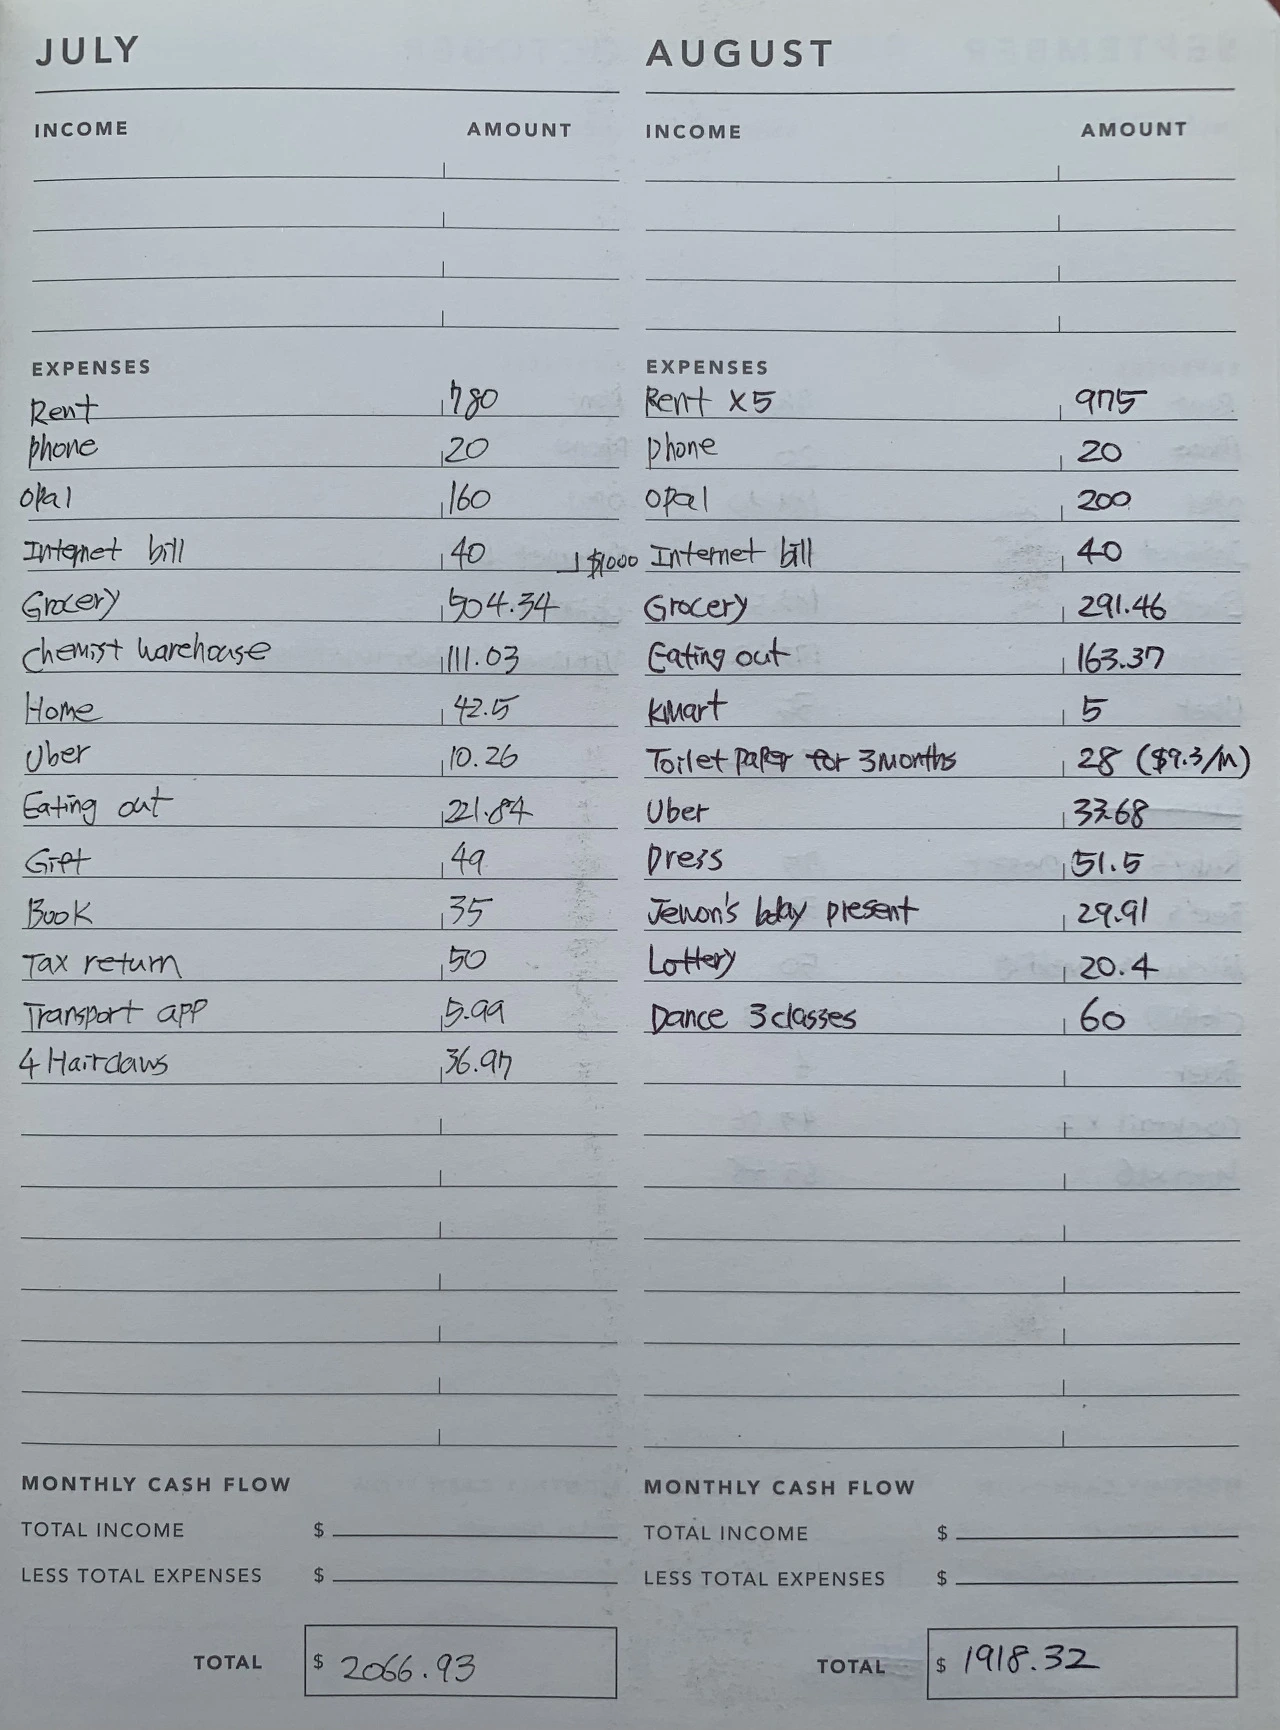 JULY
INCOME AMOUNT
EXPENSES
Rent 780
phone 20
opal 160
Internet bill 40 $1000
Grocery 504.34
chemist warehouse 111.03
Home 42.5
Uber 10.26
Eating out 221.84
Gift 49
Book 35
Tax return 50
Transport app 5.99
4 Hairclaws 36.97
MONTHLY CASH FLOW
TOTAL INCOME $
LESS TOTAL EXPENSES $
TOTAL $ 2066.93
AUGUST
INCOME AMOUNT
EXPENSES
Rent X5 975
phone 20
opal 200
Internet bill 40
Grocery 291.46
Eating out 163.37
Kmart 5
Toilet paper for 3 Months 28 ($9.3/M)
Uber 33.68
Dress 51.5
Jewon's bday present 29.91
Lottery 20.4
Dance 3 classes 60
MONTHLY CASH FLOW
TOTAL INCOME $
LESS TOTAL EXPENSES $
TOTAL $ 1918.32